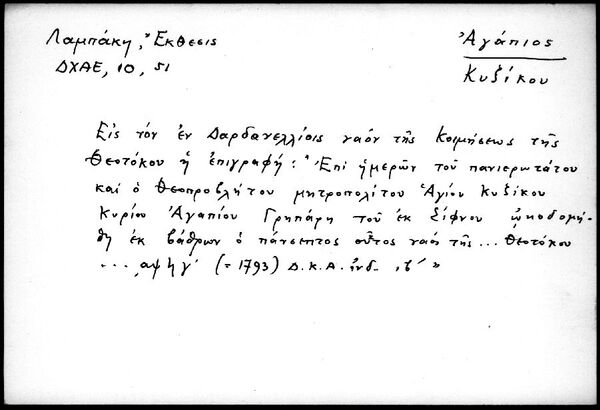 Λαμπάκη, "Εκθεσις
ΔΧΑΕ, 10, 51
Ἀγάπιος
Κυξίκου
Εἰς τόν ἐν Δαρδανελλίοις ναόν τῆς Κοιμήσεως τῆς
Θεοτόκου ἡ ἐπιγραφή: "Ἐπί ἡμερῶν τοῦ πανιερωτάτου
καί ὁ θεοπροβλήτου μητροπολίτου Ἁγίου Κυξίκου
Κυρίου Ἀγαπίου Γρηπάρη τοῦ ἐκ Σίφνου ᾠκοδομή-
θη ἐκ βάθρων ὁ πάνσεπτος οὗτος ναός τῆς ... Θεοτόκου
... αψϟγ' (= 1793) Δ.Κ.Α. ἰνδ. ιβ´ »